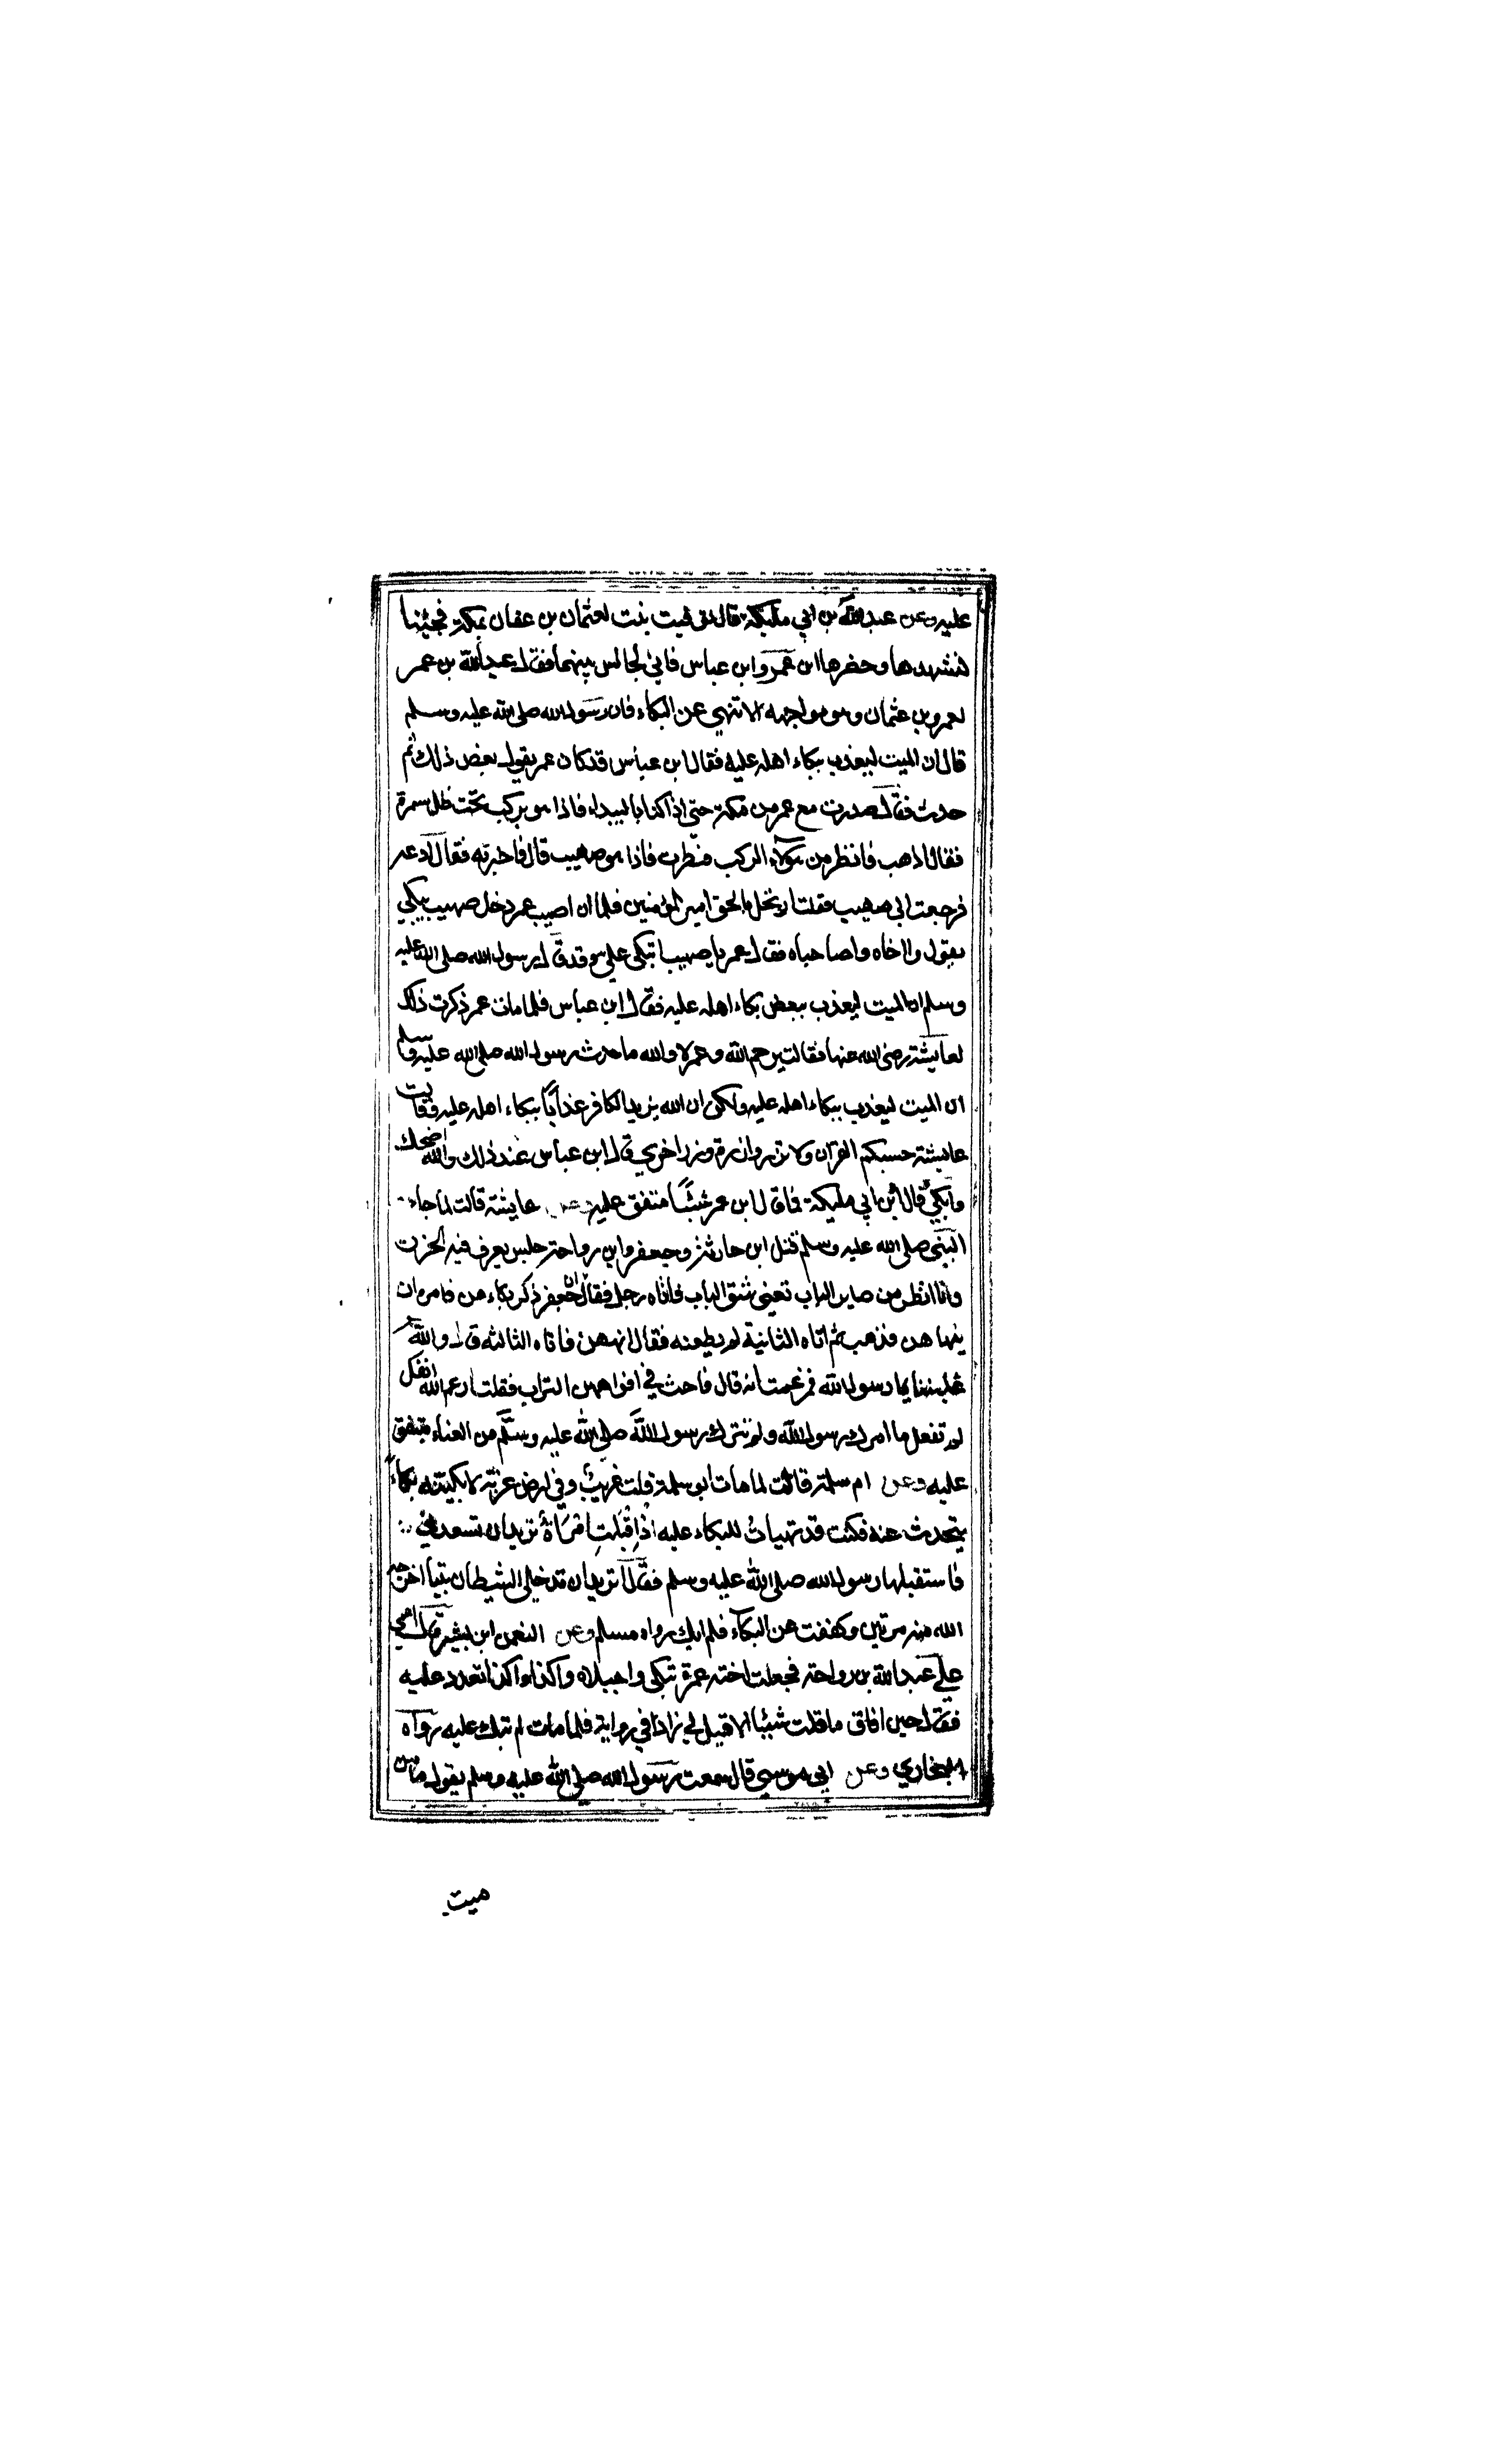 عليه وعن عبدالله بن ابي مليكة قال توفيت بنت لعثمان بن عفان بمكة فجئنا
لنشهدها وحضرها ابن عمر وابن عباس فاني لجالس بينهما فقال عبدالله بن عمر
لعمرو بن عثمان وهو مواجهه الا تنهى عن البكاء فان رسول الله صلى الله عليه وسلم
قال ان الميت ليعذب ببكاء اهله عليه فقال ابن عباس قد كان عمر يقول بعض ذلك ثم
حدث فقال صدرت مع عمر من مكة حتى اذا كنا بالبيداء فاذا هو بركب تحت ظل سمرة
فقال اذهب فانظر من هؤلاء الركب فنظرت فاذا هو صهيب قال فاخبرته فقال ادعه
فرجعت الى صهيب فقلت ارتحل فالحق امير المؤمنين فلما ان اصيب عمر دخل صهيب يبكي
يقول وااخاه واصاحباه فقال عمر يا صهيب اتبكي علي وقد قال رسول الله صلى الله عليه
وسلم ان الميت ليعذب ببعض بكاء اهله عليه فقال ابن عباس فلما مات عمر ذكرت ذلك
لعايشة رضى الله عنها فقالت يرحم الله عمر لا والله ما حدث رسول الله صلى الله عليه وسلم
ان الميت ليعذب ببكاء اهله عليه ولكن ان الله يزيد الكافر عذابا ببكاء اهله عليه وقالت
عايشة حسبكم القران ولا تزر وازرة وزر اخرى قال ابن عباس عند ذلك والله اضحك
وابكى قال ابن ابي مليكة فما قال ابن عمر شيئا متفق عليه وعن عايشة قالت لما جاء
النبي صلى الله عليه وسلم قتل ابن حارثة وجعفر وابن رواحة جلس يعرف فيه الحزن
وانا انظر من صاير الباب تعني شق الباب فاتاه رجل فقال ان نساء جعفر وذكر بكاءهن فامره ان
ينهاهن فذهب ثم اتاه الثانية لم يطعنه فقال انههن فاتاه الثالثة قال والله
غلبننا يا رسول الله فزعمت انه قال فاحث في افواههن التراب فقلت ارغم الله انفك
لم تفعل ما امرك رسول الله ولم تترك رسول الله صلى الله عليه وسلم من العناء متفق
عليه وعن ام سلمة قالت لما مات ابو سلمة قلت غريب وفي ارض غربة لابكينه بكاء
يتحدث عنه فكنت قد تهيات للبكاء عليه اذ اقبلت امراة تريد ان تسعدني
فاستقبلها رسول الله صلى الله عليه وسلم فقال اتريدين ان تدخلي الشيطان بيتا اخرجه
الله منه مرتين وكففت عن البكاء فلم ابك رواه مسلم وعن النعمن ابن بشير قال اغمي
على عبدالله بن رواحة فجعلت اخته عمرة تبكي واجبلاه واكذا واكذا تعدد عليه
فقال حين افاق ما قلت شيئا الا قيل لي زاد في رواية فلما مات لم تبك عليه رواه
البخاري وعن ابي موسى قال سمعت رسول الله صلى الله عليه وسلم يقول ما من
ميت